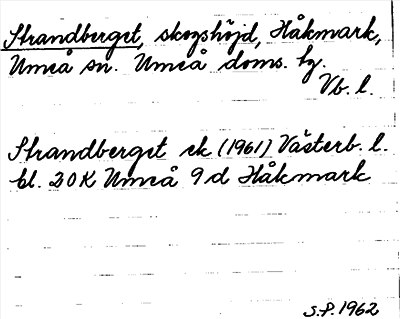 Strandberget, skogshöjd, Håkmark,
Umeå sn. Umeå doms. hg.
Vb. l.
Strandberget ek (1961) Västerb. l.
bl. 20K Umeå 9d Håkmark
S.P. 1962